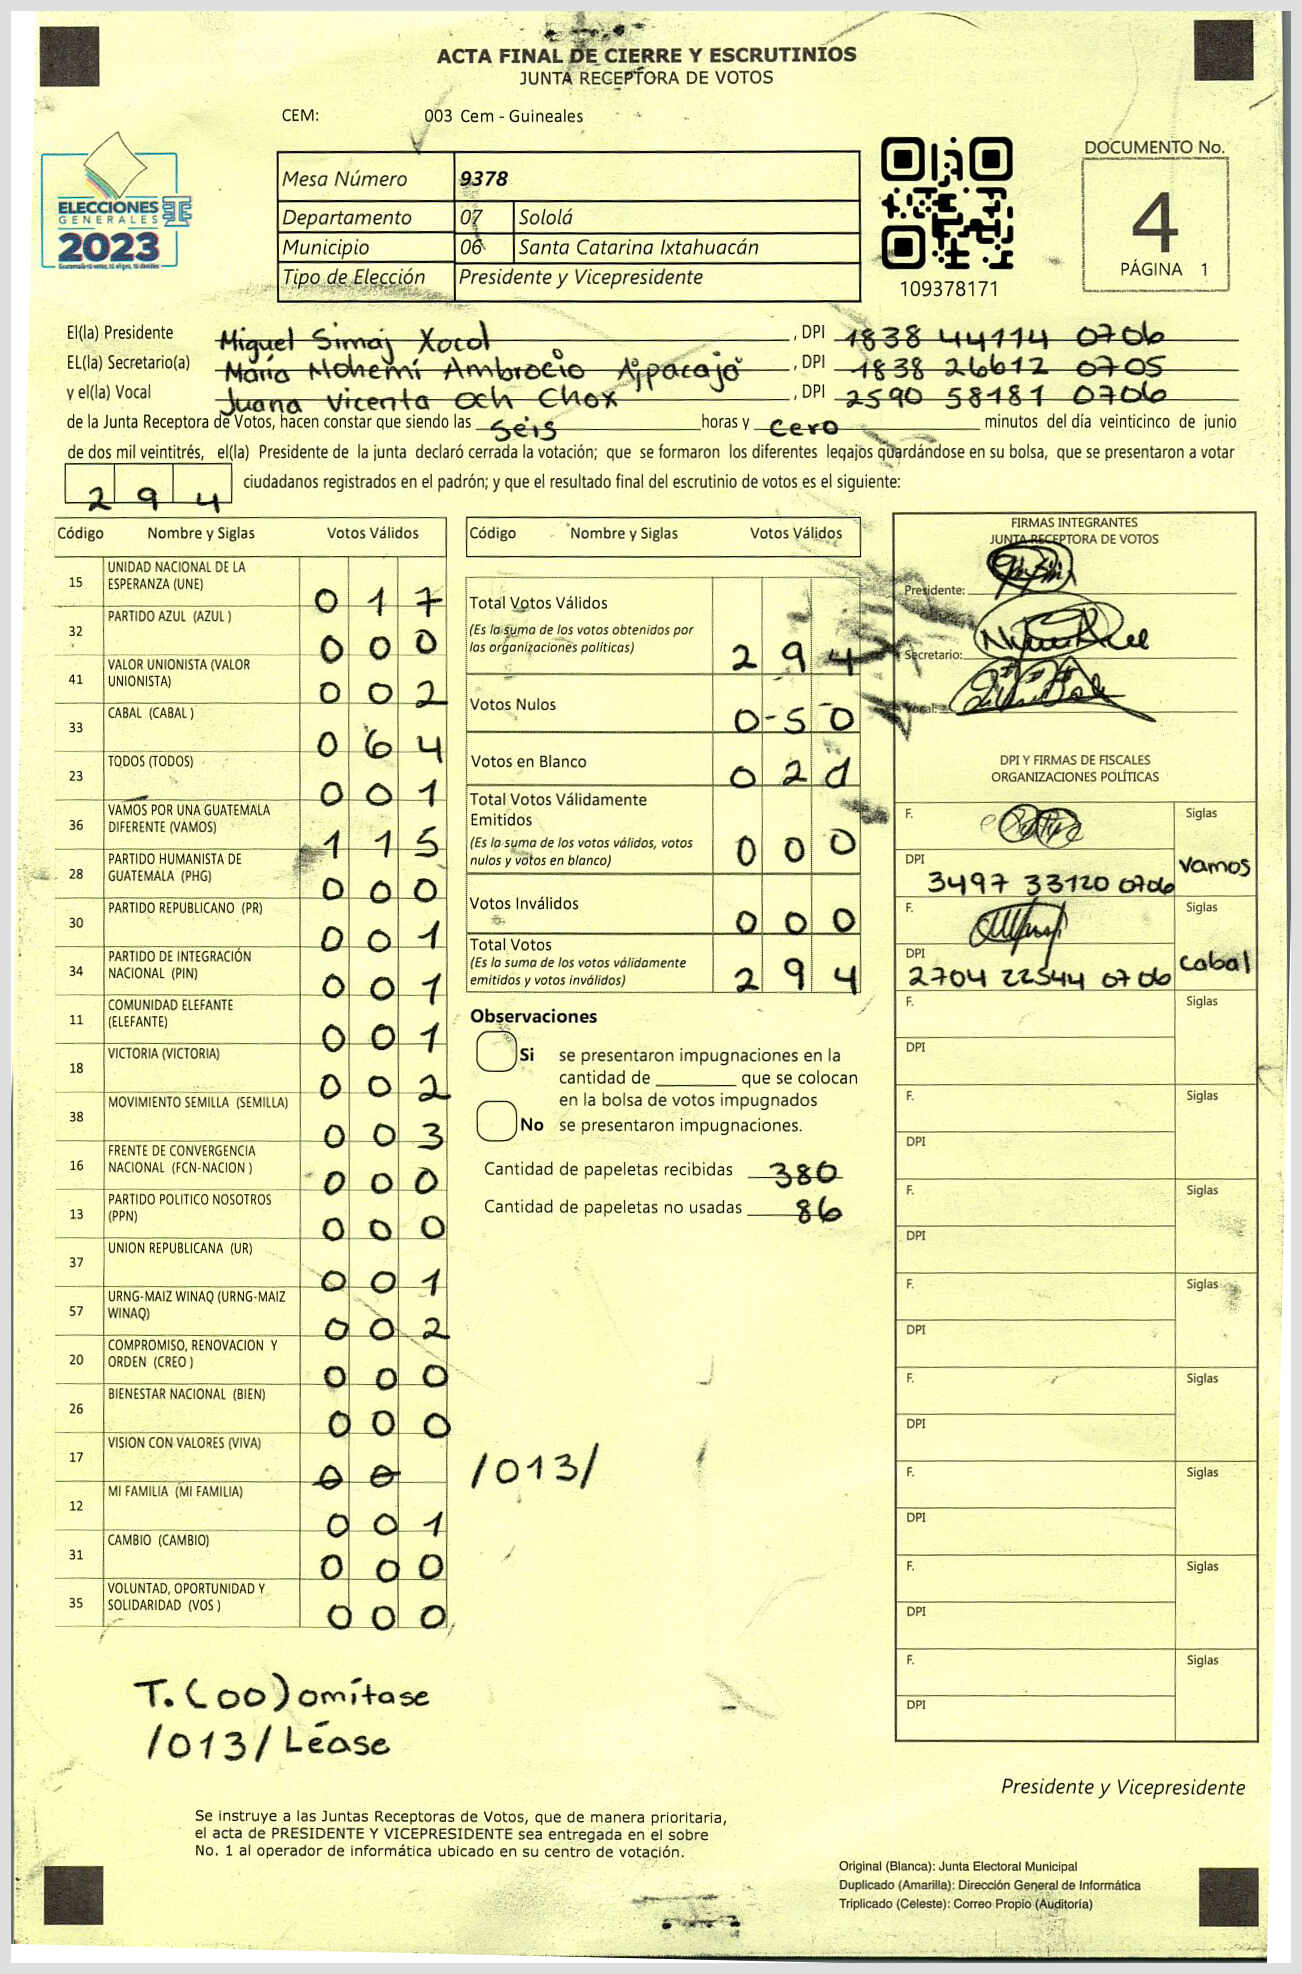 ACTA FINAL DE CIERRE Y ESCRUTINIOS
JUNTA RECEPTORA DE VOTOS
CEM: 003 Cem - Guineales
ELECCIONES
GENERALES
2023
Mesa Número 9378
Departamento 07 Sololá
Municipio 06 Santa Catarina Ixtahuacán
Tipo de Elección Presidente y Vicepresidente
109378171
DOCUMENTO No.
4
PÁGINA 1
El(la) Presidente Miguel Simaj Xocol, DPI 1838 44114 0706
EL(la) Secretario(a) María Nohemí Ambrocio Ajpacajá, DPI 1838 26612 0705
y el(la) Vocal Juana Vicenta Och Chox, DPI 2590 58181 0706
de la Junta Receptora de Votos, hacen constar que siendo las seis horas y cero minutos del día veinticinco de junio
de dos mil veintitrés, el(la) Presidente de la junta declaró cerrada la votación; que se formaron los diferentes legajos guardándose en su bolsa, que se presentaron a votar
294 ciudadanos registrados en el padrón; y que el resultado final del escrutinio de votos es el siguiente:
Código Nombre y Siglas Votos Válidos
15 UNIDAD NACIONAL DE LA
ESPERANZA (UNE) 0 1 7
32 PARTIDO AZUL (AZUL ) 0 0 0
41 VALOR UNIONISTA (VALOR
UNIONISTA) 0 0 2
33 CABAL (CABAL ) 0 6 4
23 TODOS (TODOS) 0 0 1
36 VAMOS POR UNA GUATEMALA
DIFERENTE (VAMOS) 1 1 5
28 PARTIDO HUMANISTA DE
GUATEMALA (PHG) 0 0 0
30 PARTIDO REPUBLICANO (PR) 0 0 1
34 PARTIDO DE INTEGRACIÓN
NACIONAL (PIN) 0 0 1
11 COMUNIDAD ELEFANTE
(ELEFANTE) 0 0 1
18 VICTORIA (VICTORIA) 0 0 2
38 MOVIMIENTO SEMILLA (SEMILLA) 0 0 3
16 FRENTE DE CONVERGENCIA
NACIONAL (FCN-NACION ) 0 0 0
13 PARTIDO POLITICO NOSOTROS
(PPN) 0 0 0
37 UNION REPUBLICANA (UR) 0 0 1
57 URNG-MAIZ WINAQ (URNG-MAIZ
WINAQ) 0 0 2
20 COMPROMISO, RENOVACION Y
ORDEN (CREO ) 0 0 0
26 BIENESTAR NACIONAL (BIEN) 0 0 0
17 VISION CON VALORES (VIVA) 0 0 /013/
12 MI FAMILIA (MI FAMILIA) 0 0 1
31 CAMBIO (CAMBIO) 0 0 0
35 VOLUNTAD, OPORTUNIDAD Y
SOLIDARIDAD (VOS ) 0 0 0
T. (00) omítase
/013/ Léase
Código Nombre y Siglas Votos Válidos
Total Votos Válidos
(Es la suma de los votos obtenidos por
las organizaciones políticas) 2 9 4
Votos Nulos 0-5 0
Votos en Blanco 0 2 1
Total Votos Válidamente
Emitidos
(Es la suma de los votos válidos, votos
nulos y votos en blanco) 0 0 0
Votos Inválidos 0 0 0
Total Votos
(Es la suma de los votos válidamente
emitidos y votos inválidos) 2 9 4
Observaciones
Si se presentaron impugnaciones en la
cantidad de ________ que se colocan
en la bolsa de votos impugnados
No se presentaron impugnaciones.
Cantidad de papeletas recibidas 380
Cantidad de papeletas no usadas 86
FIRMAS INTEGRANTES
JUNTA RECEPTORA DE VOTOS
Presidente:
Secretario:
Vocal:
DPI Y FIRMAS DE FISCALES
ORGANIZACIONES POLÍTICAS
F. Siglas
DPI 3497 33120 0706 Vamos
F. Siglas
DPI 2704 22544 0706 cabal
F. Siglas
DPI
F. Siglas
DPI
F. Siglas
DPI
F. Siglas
DPI
F. Siglas
DPI
F. Siglas
DPI
F. Siglas
DPI
F. Siglas
DPI
Presidente y Vicepresidente
Se instruye a las Juntas Receptoras de Votos, que de manera prioritaria,
el acta de PRESIDENTE Y VICEPRESIDENTE sea entregada en el sobre
No. 1 al operador de informática ubicado en su centro de votación.
Original (Blanca): Junta Electoral Municipal
Duplicado (Amarilla): Dirección General de Informática
Triplicado (Celeste): Correo Propio (Auditoría)